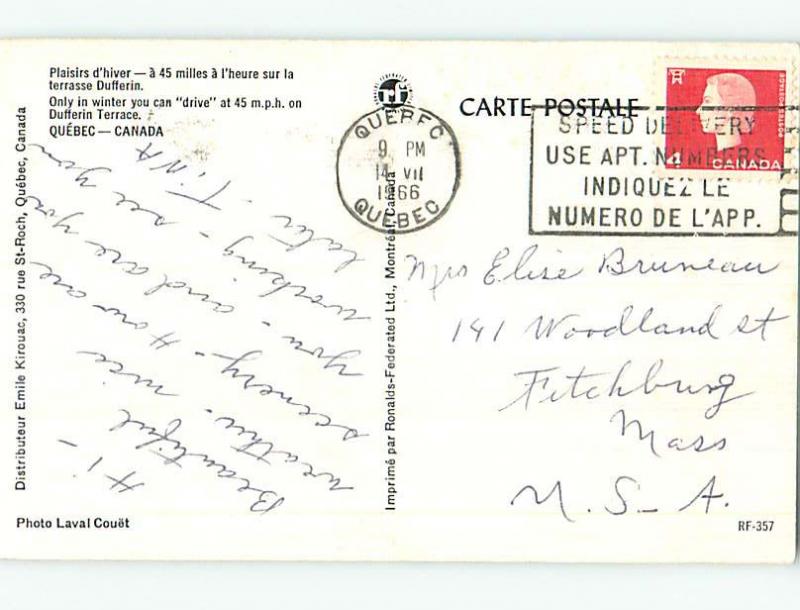 Plaisirs d'hiver — à 45 milles à l'heure sur la
terrasse Dufferin.
Only in winter you can "drive" at 45 m.p.h. on
Dufferin Terrace.
QUÉBEC — CANADA
Hi -
Beautiful
weather. nice
scenery - How are
you - and are you
working - see you
later - TiNA
Distributeur Emile Kirouac, 330 rue St-Roch, Québec, Canada
Photo Laval Couët
Imprimé par Ronalds-Federated Ltd., Montréal, Canada
rf
CARTE POSTALE
QUEBEC
9 PM
14 VII
1966
QUÉBEC
SPEED DELIVERY
USE APT. NUMBERS
INDIQUEZ LE
NUMERO DE L'APP.
POSTES POSTAGE
4 CANADA
Mrs Elise Bruneau
141 Woodland st
Fitchburg
Mass
U.S-A.
RF-357